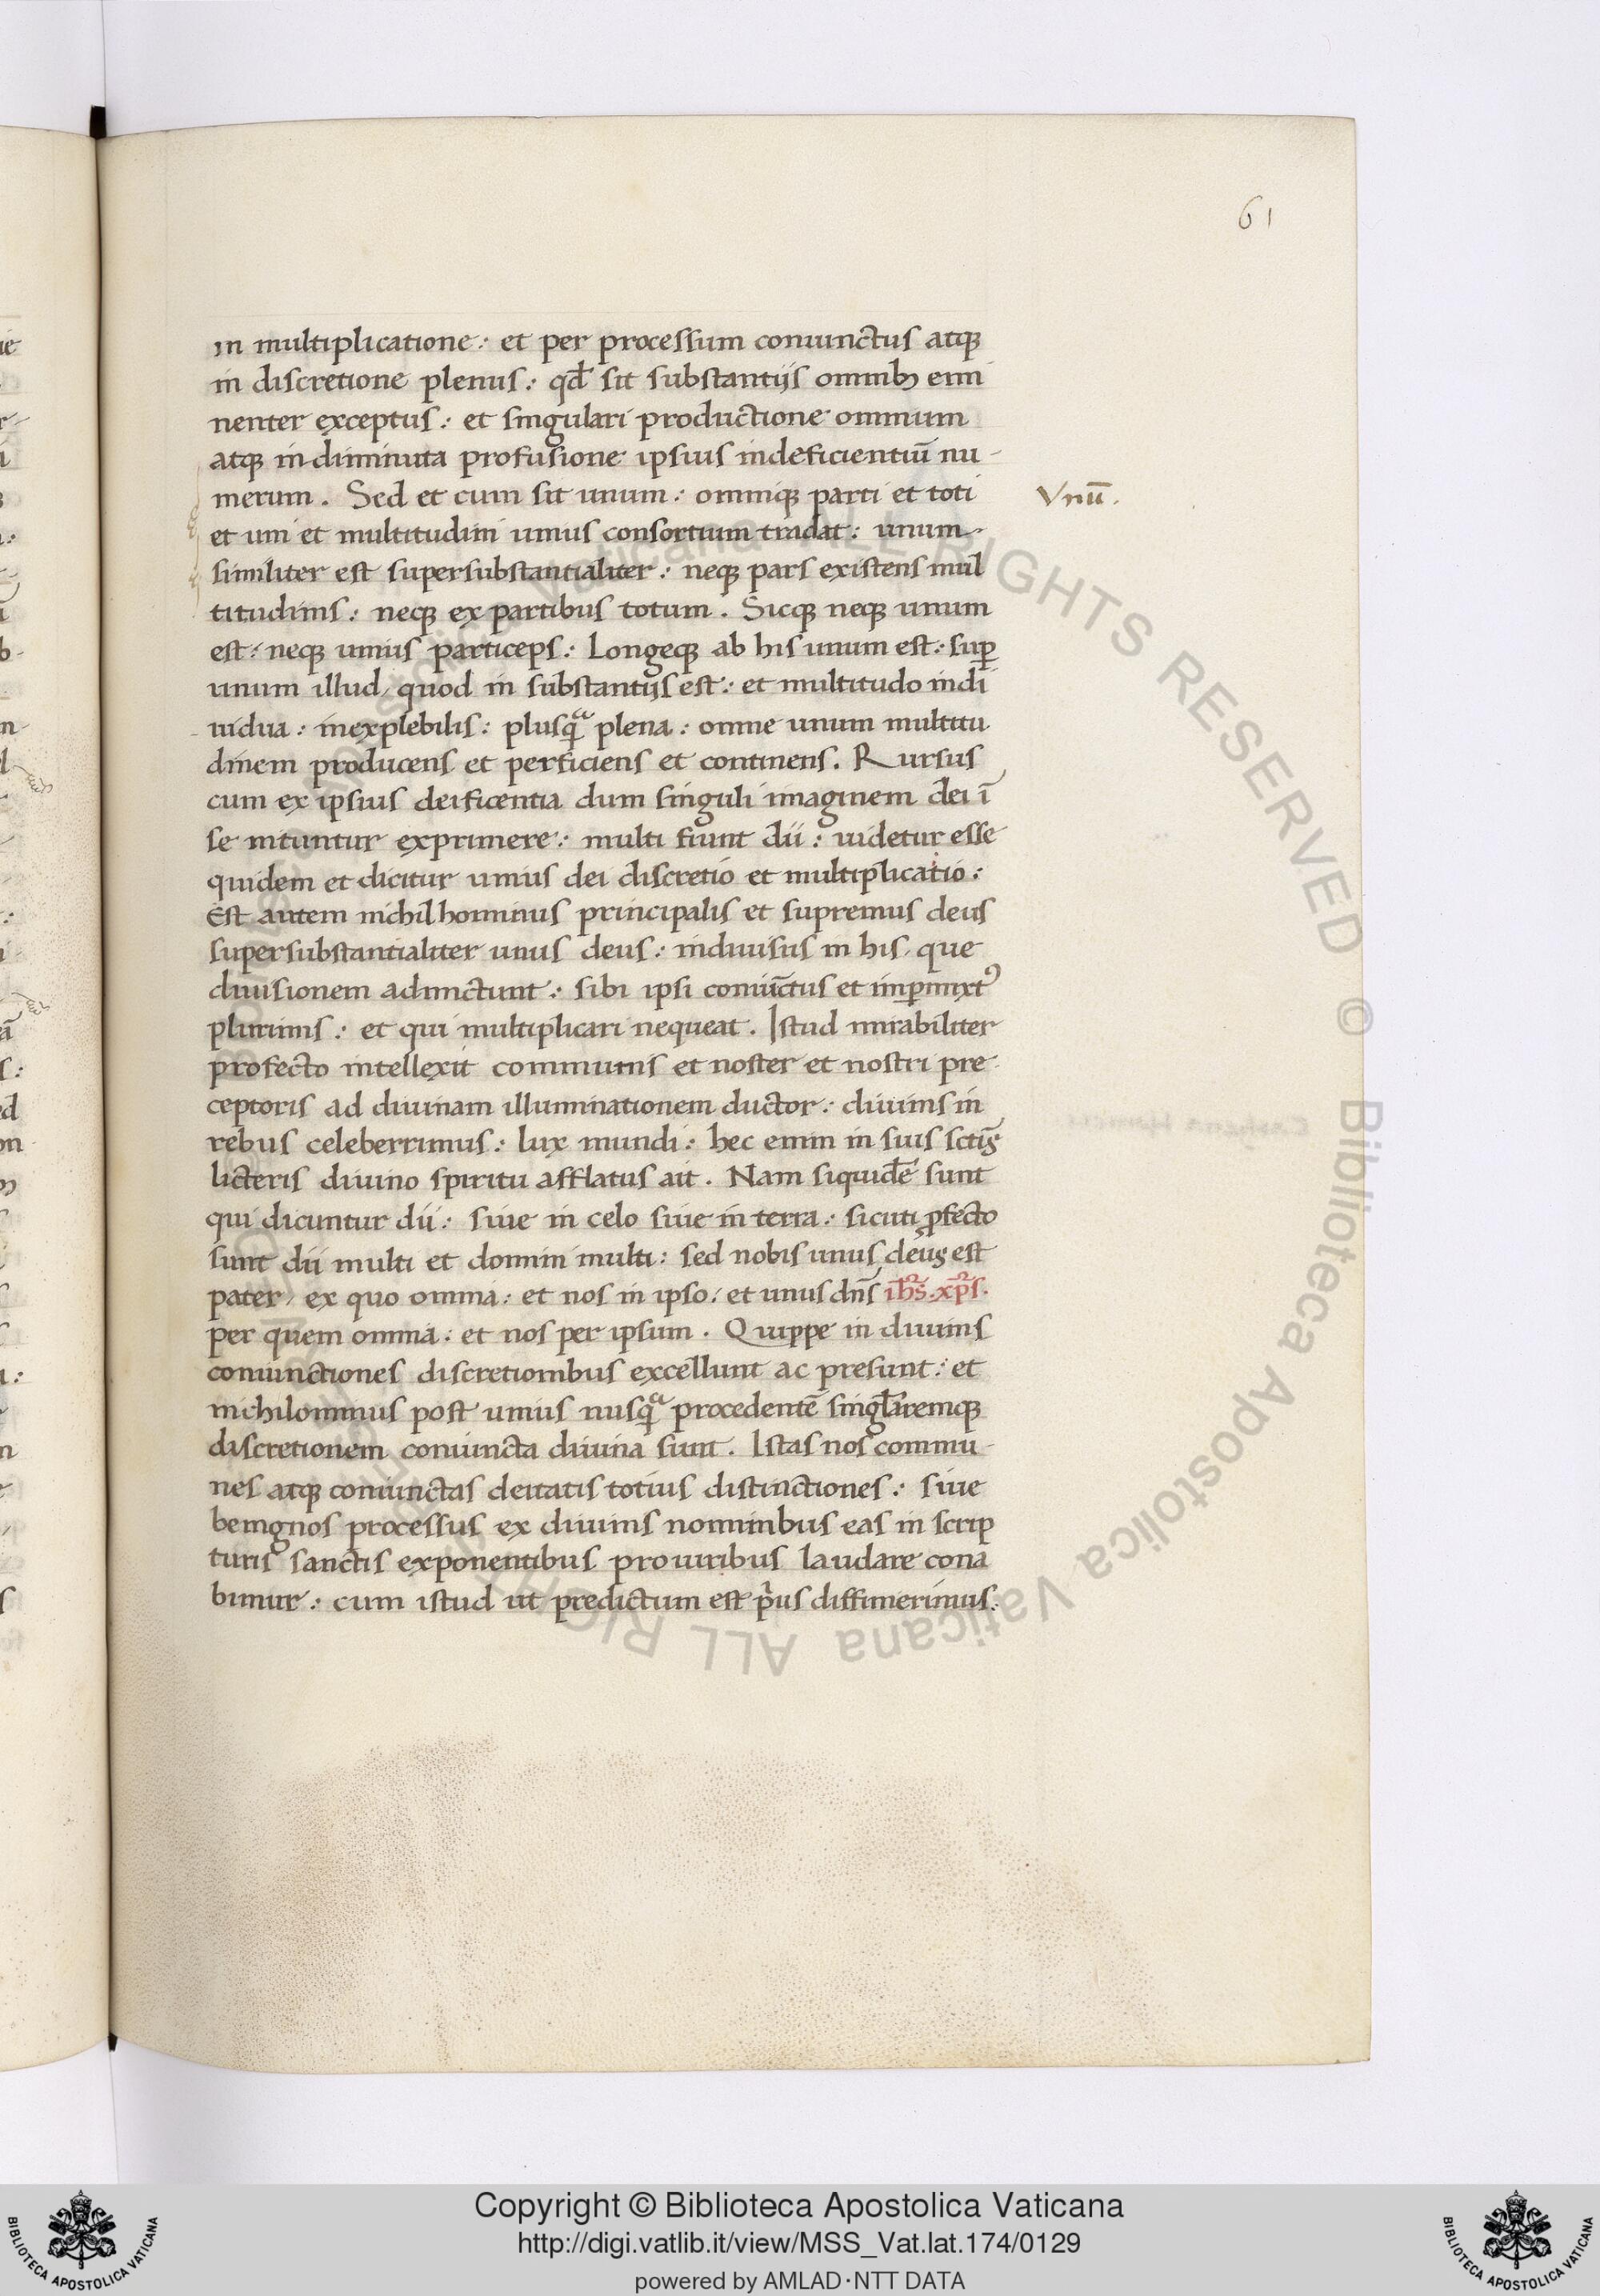 61
in multiplicatione: et per processum coniunctus atq
in discretione plenus: qđ sit substantijs omnibꝫ emi
nenter exceptus: et singulari productione omnium
atq indiminuta profusione ipsius indeficientiũ nu-
merum. Sed et cum sit unum: omniq parti et toti
Vnũ.
et uni et multitudini unius consortium tradat: unum
similiter est supersubstantialiter: neq pars existens mul
titudinis: neq ex partibus totum. Sicq neq unum
est: neq unius particeps: Longeq ab his unum est: suꝑ
unum illud, quod in substantijs est: et multitudo indi
uidua: inexplebilis: plusqᵃ plena: omne unum multitu
dinem producens et perficiens et continens. Rursus
cum ex ipsius deificentia dum singuli imaginem dei ĩ
se nituntur exprimere: multi fiunt dii: uidetur esse
quidem et dicitur unius dei discretio et multiplicatio:
Est autem nichilhominus principalis et supremus deus
supersubstantialiter unus deus: indiuisus in his, que
diuisionem admictunt: sibi ipsi coniũctus et imꝑmixtꝰ
plurimis: et qui multiplicari nequeat. Istud mirabiliter
profecto intellexit communis et noster et nostri pre-
ceptoris ad diuinam illuminationem ductor: diuinis in
rebus celeberrimus: lux mundi: hec enim in suis sctĩs
licteris diuino spiritu afflatus ait. Nam siquidẽ sunt
qui dicuntur dii: siue in celo siue in terra: sicuti ꝓfecto
sunt dii multi et domini multi: sed nobis unus deus est
pater, ex quo omnia: et nos in ipso: et unus dñs ihs̃. xp̃s.
per quem omnia: et nos per ipsum. Quippe in diuinis
coniunctiones discretionibus excellunt ac presunt: et
nichilominus post unius nusqᵃ procedentẽ singłaremq
discretionem coniuncta diuina sunt. Istas nos commu-
nes atq coniunctas deitatis totius distinctiones: siue
benignos processus ex diuinis nominibus eas in scrip
turis sanctis exponentibus pro uiribus laudare cona
bimur: cum istud ut predictum est pⁱus diffinierimus:
Copyright © Biblioteca Apostolica Vaticana
http://digi.vatlib.it/view/MSS_Vat.lat.174/0129
powered by AMLAD·NTT DATA